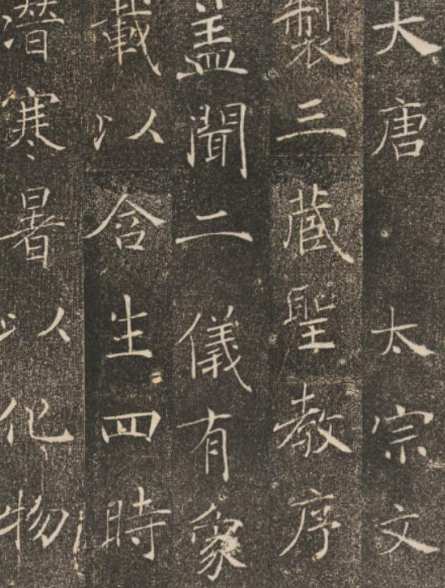 大唐太宗文
製三蔵聖教序
盖聞二儀有象
載以含生四時
潛寒暑以化物